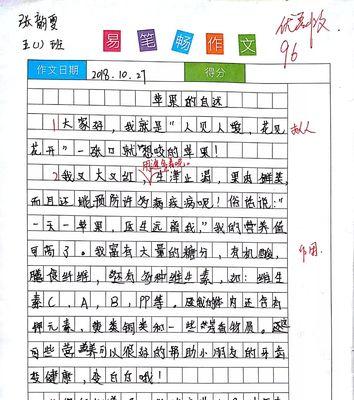 张韵雯
五(1)班
易笔畅作文
优 96
作文日期 2018.10.27 得分
苹果的自述
1大家好，我就是"人见人爱，花见 拟人
花开"一张口就"想咬的苹果！
2我又大又红，生津止渴，果肉鲜美，
而且还能预防许多疾病呢！俗话说："
一天一苹果，医生远离我"我的营养价
可高了。我富有大量的糖分，有机酸， 作用
膳食纤维，还有多种维生素，如：维生
素C，A，B，PP等。我的体内还含有
钾元素，黄类酮类和一些营养物质。这
些营养可以很好的帮助小朋友的牙齿
变健康，变白白哦！